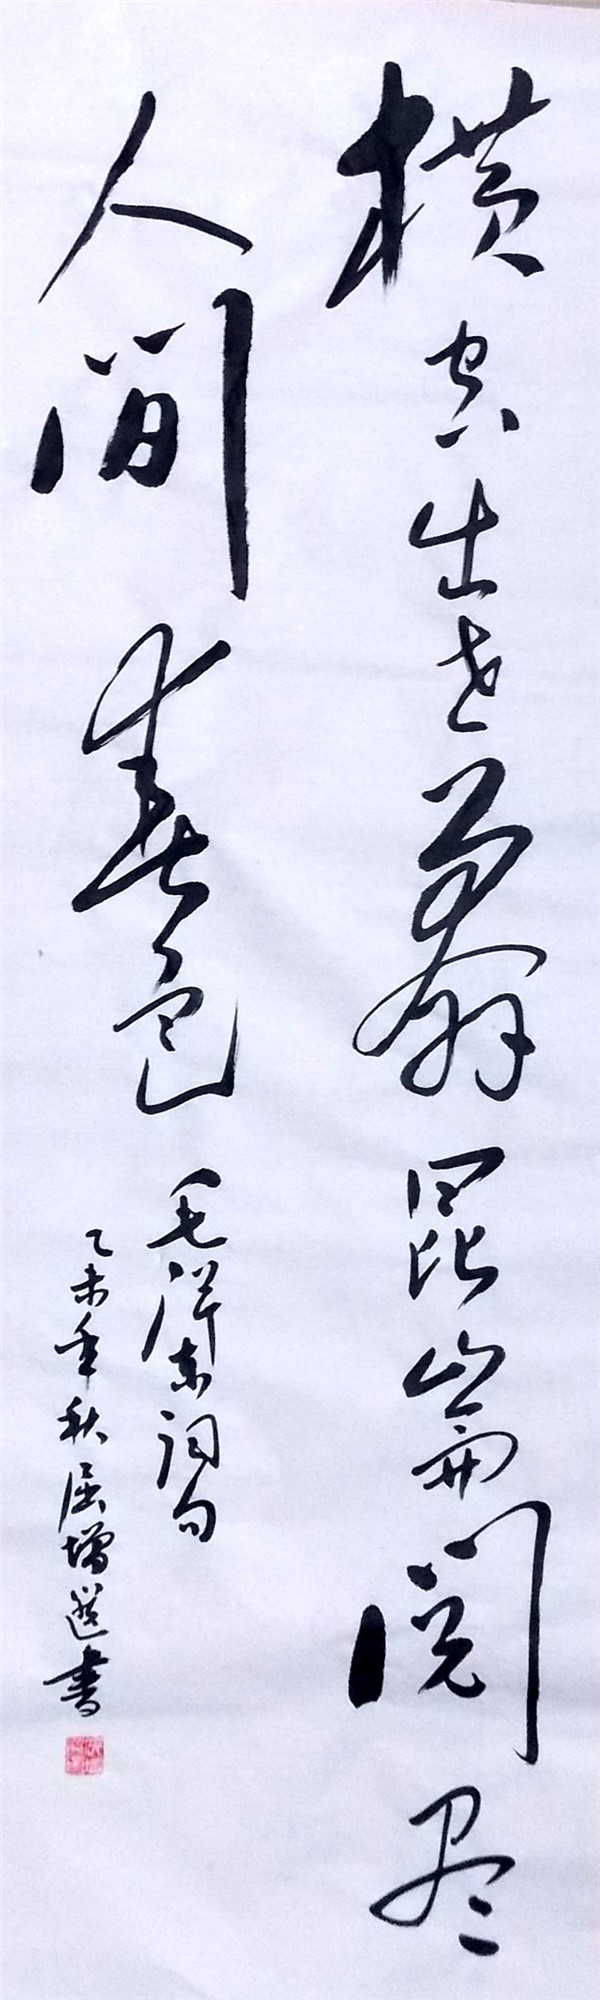 横空出世莽昆崙阅尽
人间春色
毛泽东词句
乙未年秋屈增选书